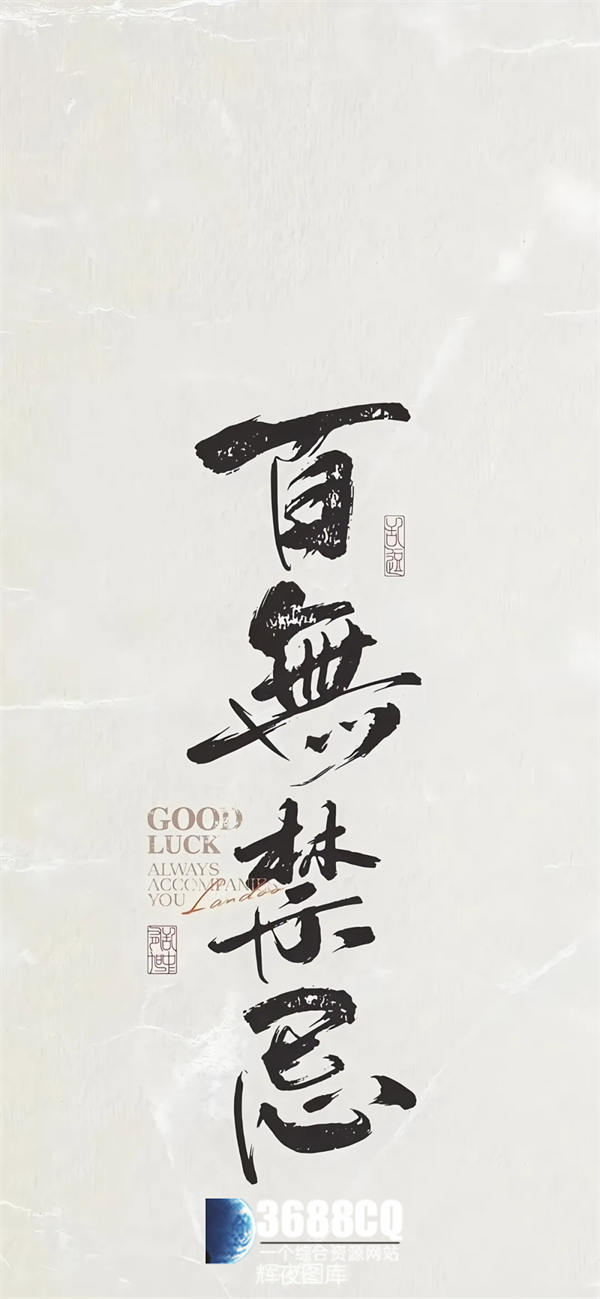 百無禁忌
GOOD
LUCK
ALWAYS
ACCOMPANIED
YOU
Landao
3688CQ
一个综合资源网站
辉夜图库